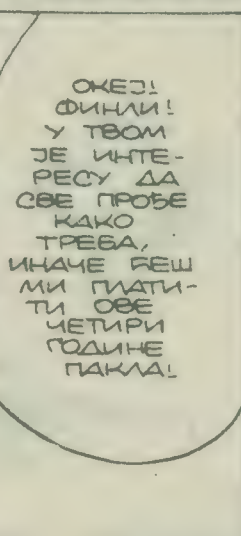 ОКЕЈ!
ФИНЛИ!
У ТВОМ
ЈЕ ИНТЕ-
РЕСУ ДА
СВЕ ПРОЂЕ
КАКО
ТРЕБА,
ИНАЧЕ ЋЕШ
МИ ПЛАТИ-
ТИ ОВЕ
ЧЕТИРИ
ГОДИНЕ
ПАКЛА!